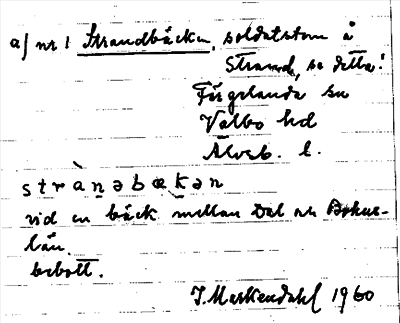 a) nr 1 Strandbäcken, soldattorp å
Strand, se detta!
Färgelanda sn
Valbo hd
Älvsb. l.
strànəbækən
vid en bäck mellan Dal och Bohus-
län.
bebott.
J. Markendahl 1960